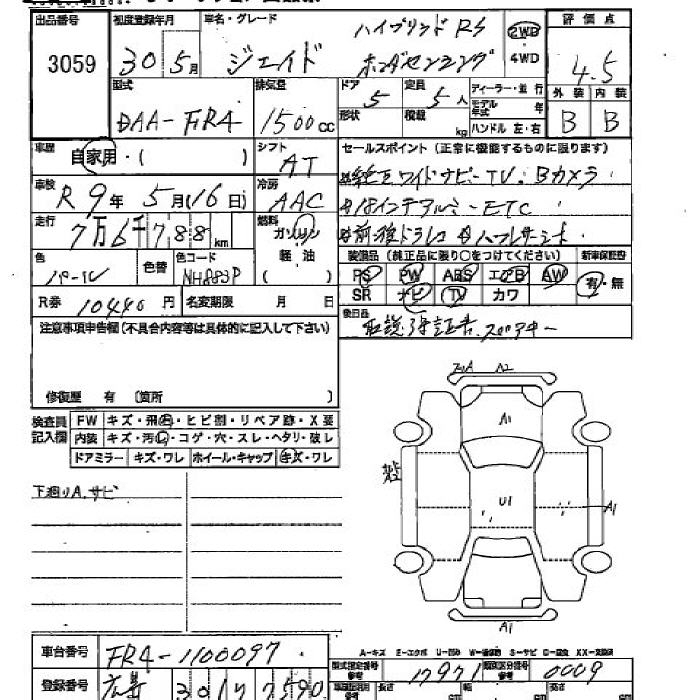 出品番号 初度登録年月 車名・グレード ハイブリッド RS 2WD 評価点
3059 30 5月 ジェイド ホンダセンシング 4WD 4.5
型式 排気量 ドア 定員 ディーラー・並行 外装 内装
DAA-FR4 1500cc 5 5人 モデル年式 年 B B
形状 積載 kg ハンドル 左・右
車歴 自家用・( ) シフト AT セールスポイント (正常に機能するものに限ります)
車検 R9年5月(16日) 冷房 AAC ワイドナビ TV Bカメラ
18インチアルミ ETC
走行 7万6千788km 燃料 ガソリン 前後ドラレコ ハーフレザーシート
軽油 ( )
色 パール 色替 色コード NH883P 装備品 (純正品に限り○をつけてください) 新車保証書
PS PW ABS エアB AW 有・無
SR ナビ TV カワ
R券 10440円 名変期限 月 日 後日品 取説 保証書 スペアキー
注意事項申告欄(不具合内容等は具体的に記入して下さい)
修復歴 有 (箇所 )
検査員記入欄 FW キズ・飛石・ヒビ割・リペア跡・X要
内装 キズ・汚れ・コゲ・穴・スレ・ヘタリ・破レ
ドアミラー キズ・ワレ ホイール・キャップ キズ・ワレ
下廻りA.サビ
A2
A1
U1
A1
A1
A-キズ E-エクボ U-凹み S-サビ
車台番号 FR4-1100097 型式指定番号 参考 17971 類別区分番号 参考 0009
登録番号 301 7590 長さ cm 幅 cm 高さ